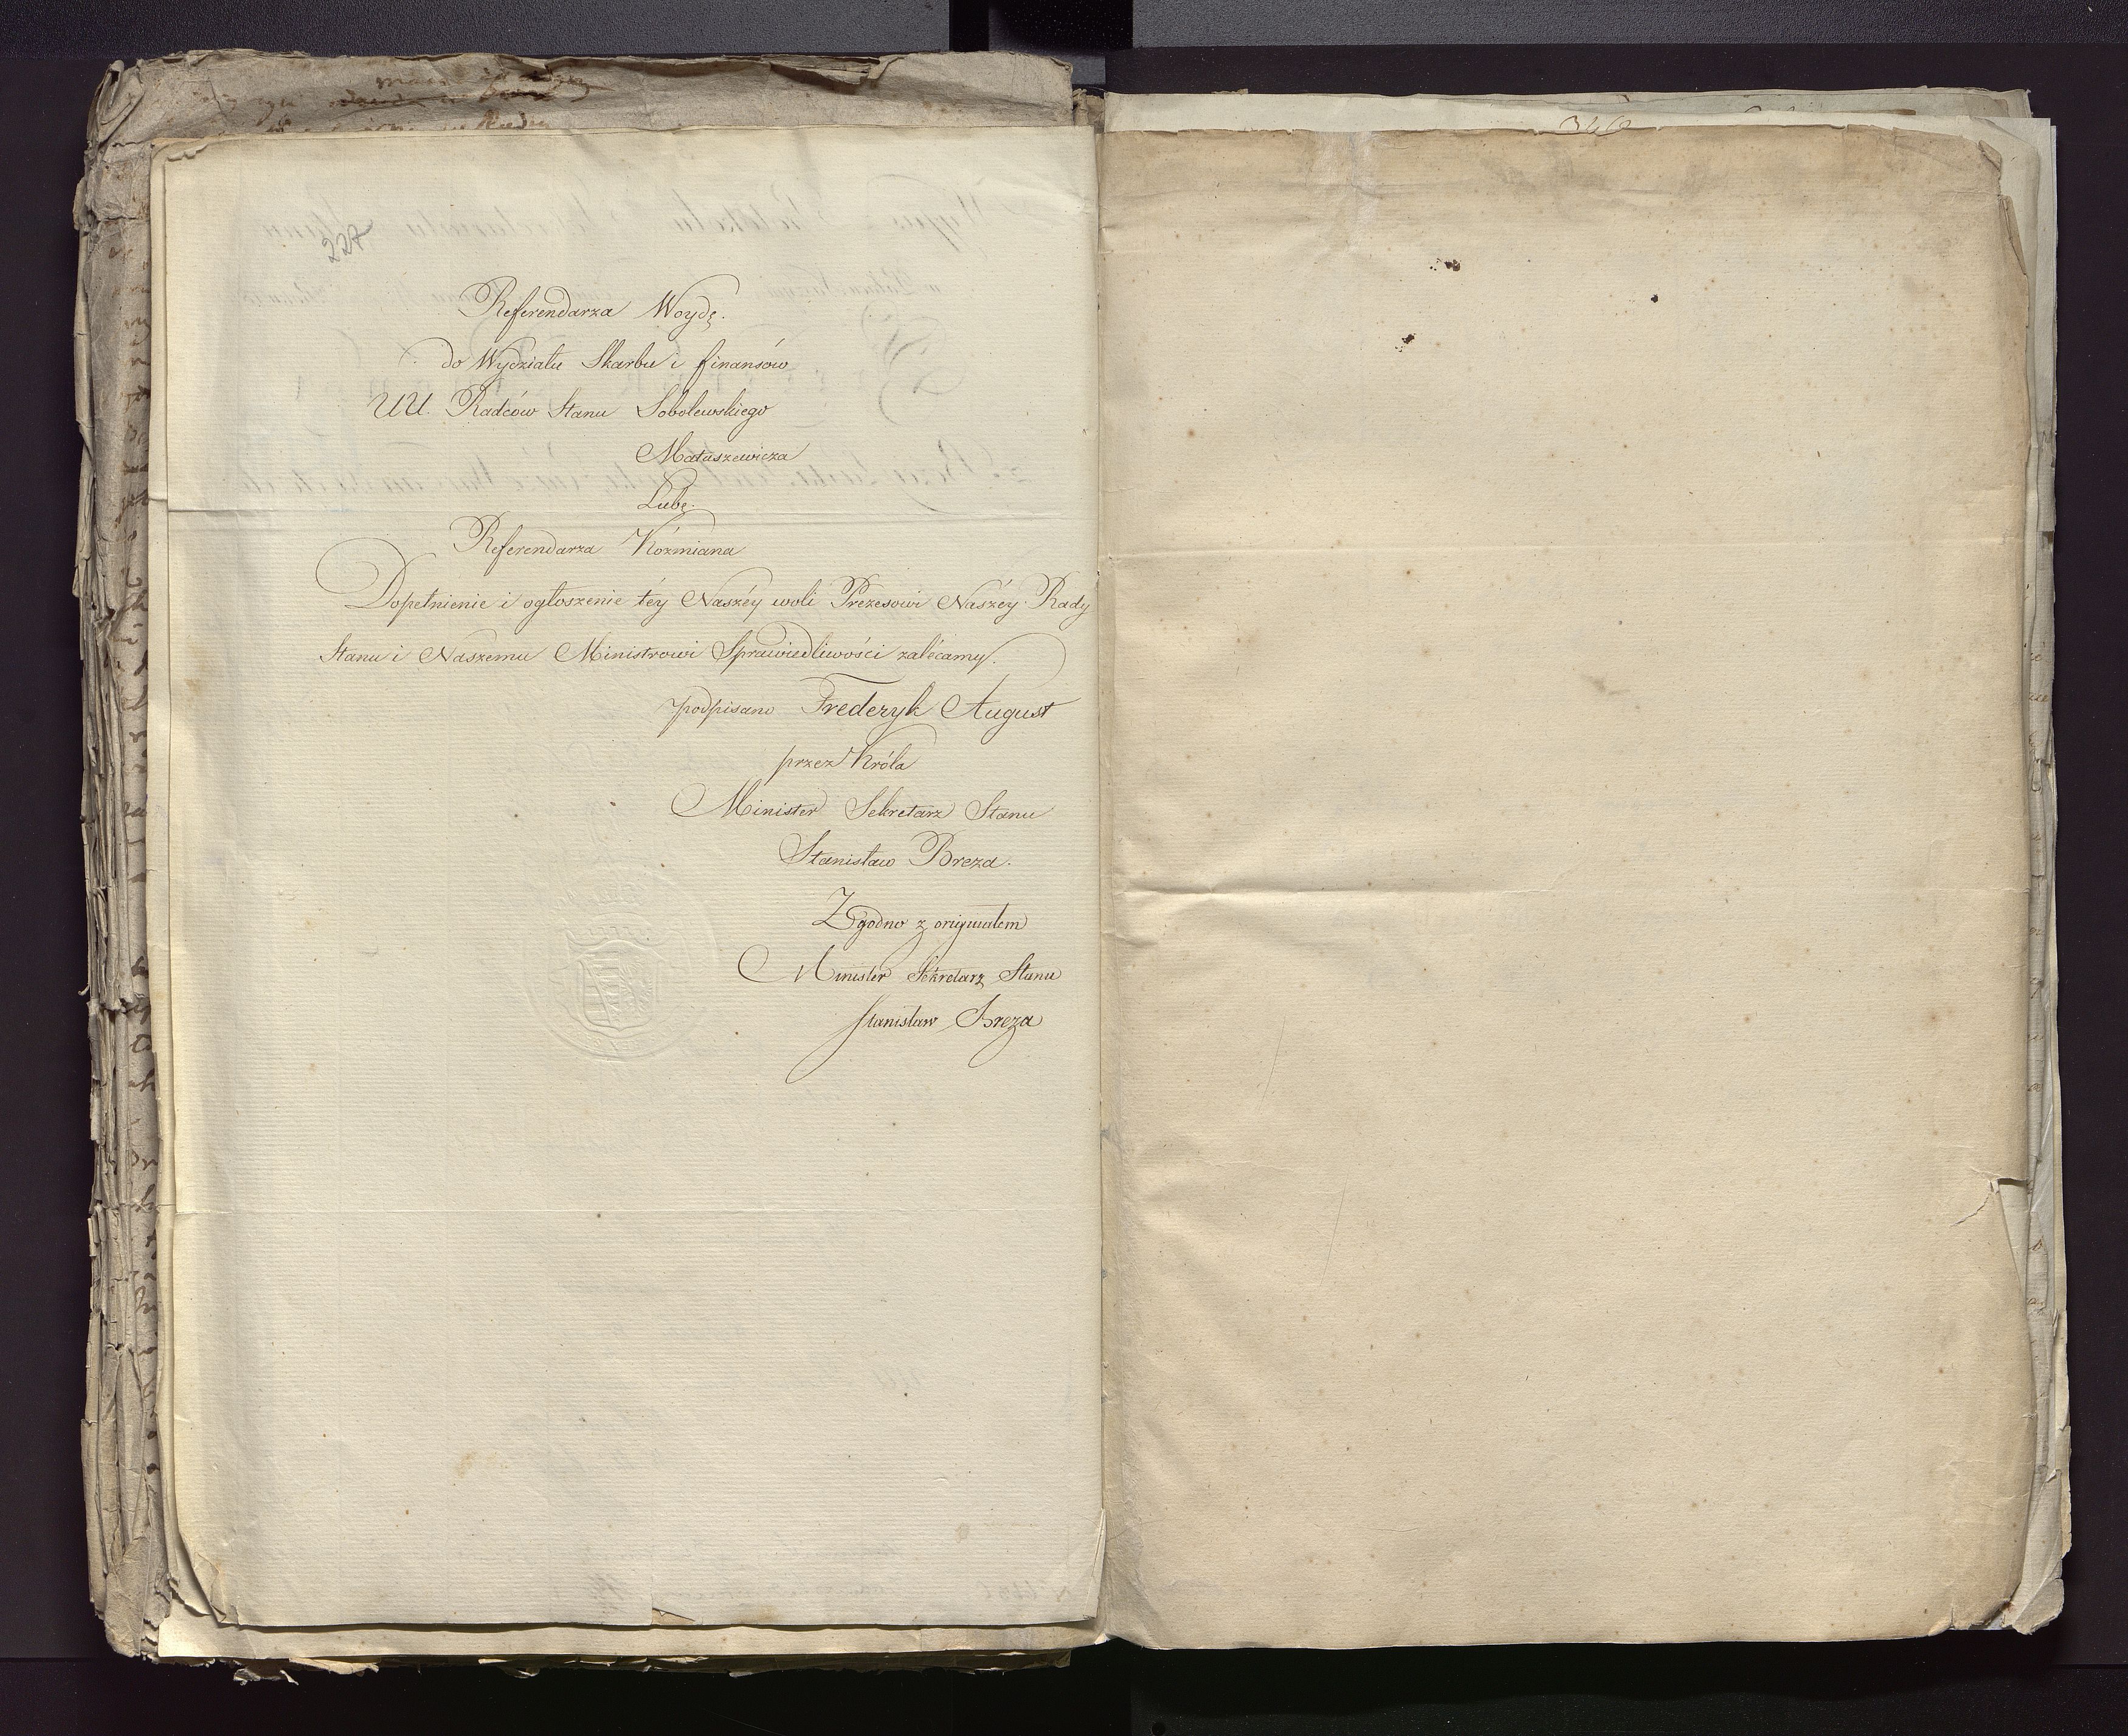 227
Referendarza Woydę.
do Wydziału Skarbu i finansów
UU. Radców Stanu Sobolewskiego
Matuszewicza
Lubę.
Referendarza Koźmiana
Dopełnienie i ogłoszenie téy Naszéy woli Prezesowi Naszéy Rady
Stanu i Naszemu Ministrowi Sprawiedliwości zalécamy.
podpisano Frederyk August
przez Króla
Minister Sekretarz Stanu
Stanisław Breza.
Zgodno z originałem
Minister Sekretarz Stanu
Stanisław Breza
346